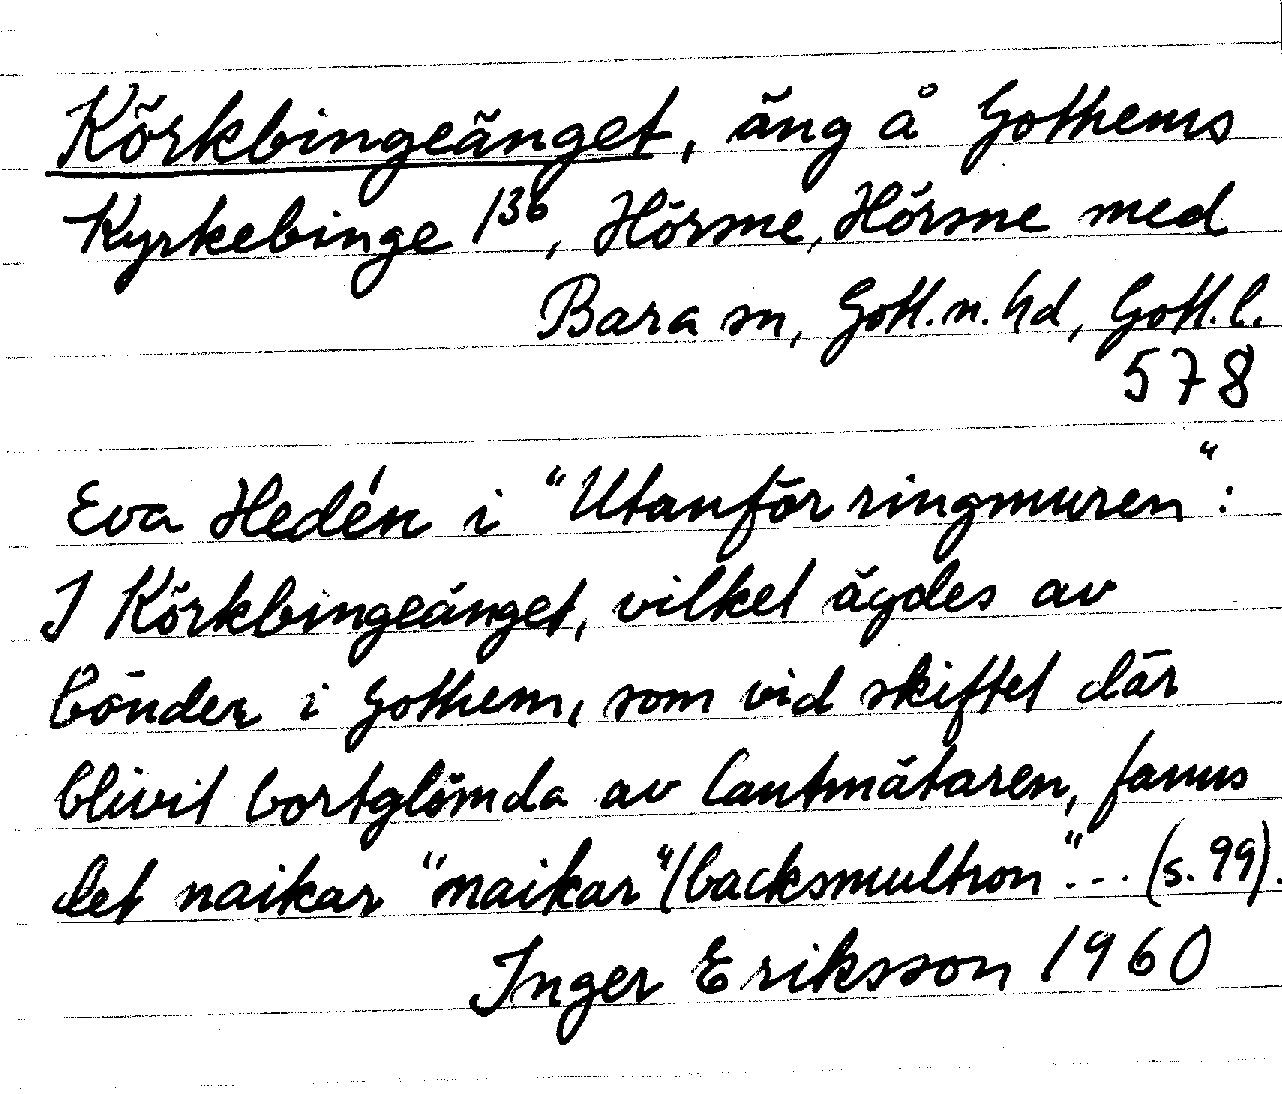 Körkbingeänget, äng å Gothems
Kyrkebinge 1³⁶, Hörsne, Hörsne med
Bara sn, Gotl. n. hd, Gotl. l.
578
Eva Hedén i "Utanför ringmuren":
I Körkbingeänget, vilket ägdes av
bönder i Gothem, som vid skiftet där
blivit bortglömda av lantmätaren, fanns
det naikar "maikar"/backsmultron"... (s. 99).
Inger Eriksson 1960